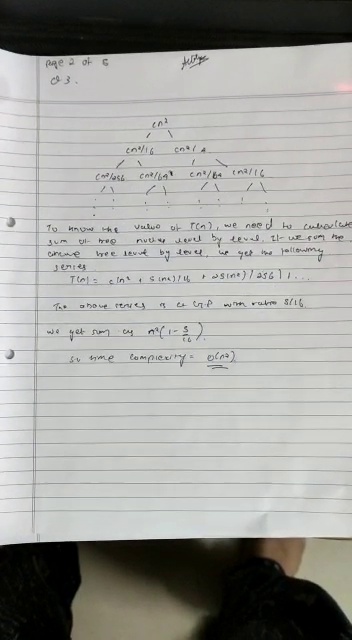 page 2 of 5
Q3.
cn²
cn²/16 cn²/4
cn²/256 cn²/64 cn²/64 cn²/16
To know the value of T(n), we need to calculate
sum of tree nodes level by level. If we sum the
above tree level by level, we get the following
series
T(n) = c(n² + 5(n²)/16 + 25(n²)/256) + ...
The above series is a G.P with ratio 5/16
we get sum as n²(1 - 5/16).
so time complexity = O(n²)